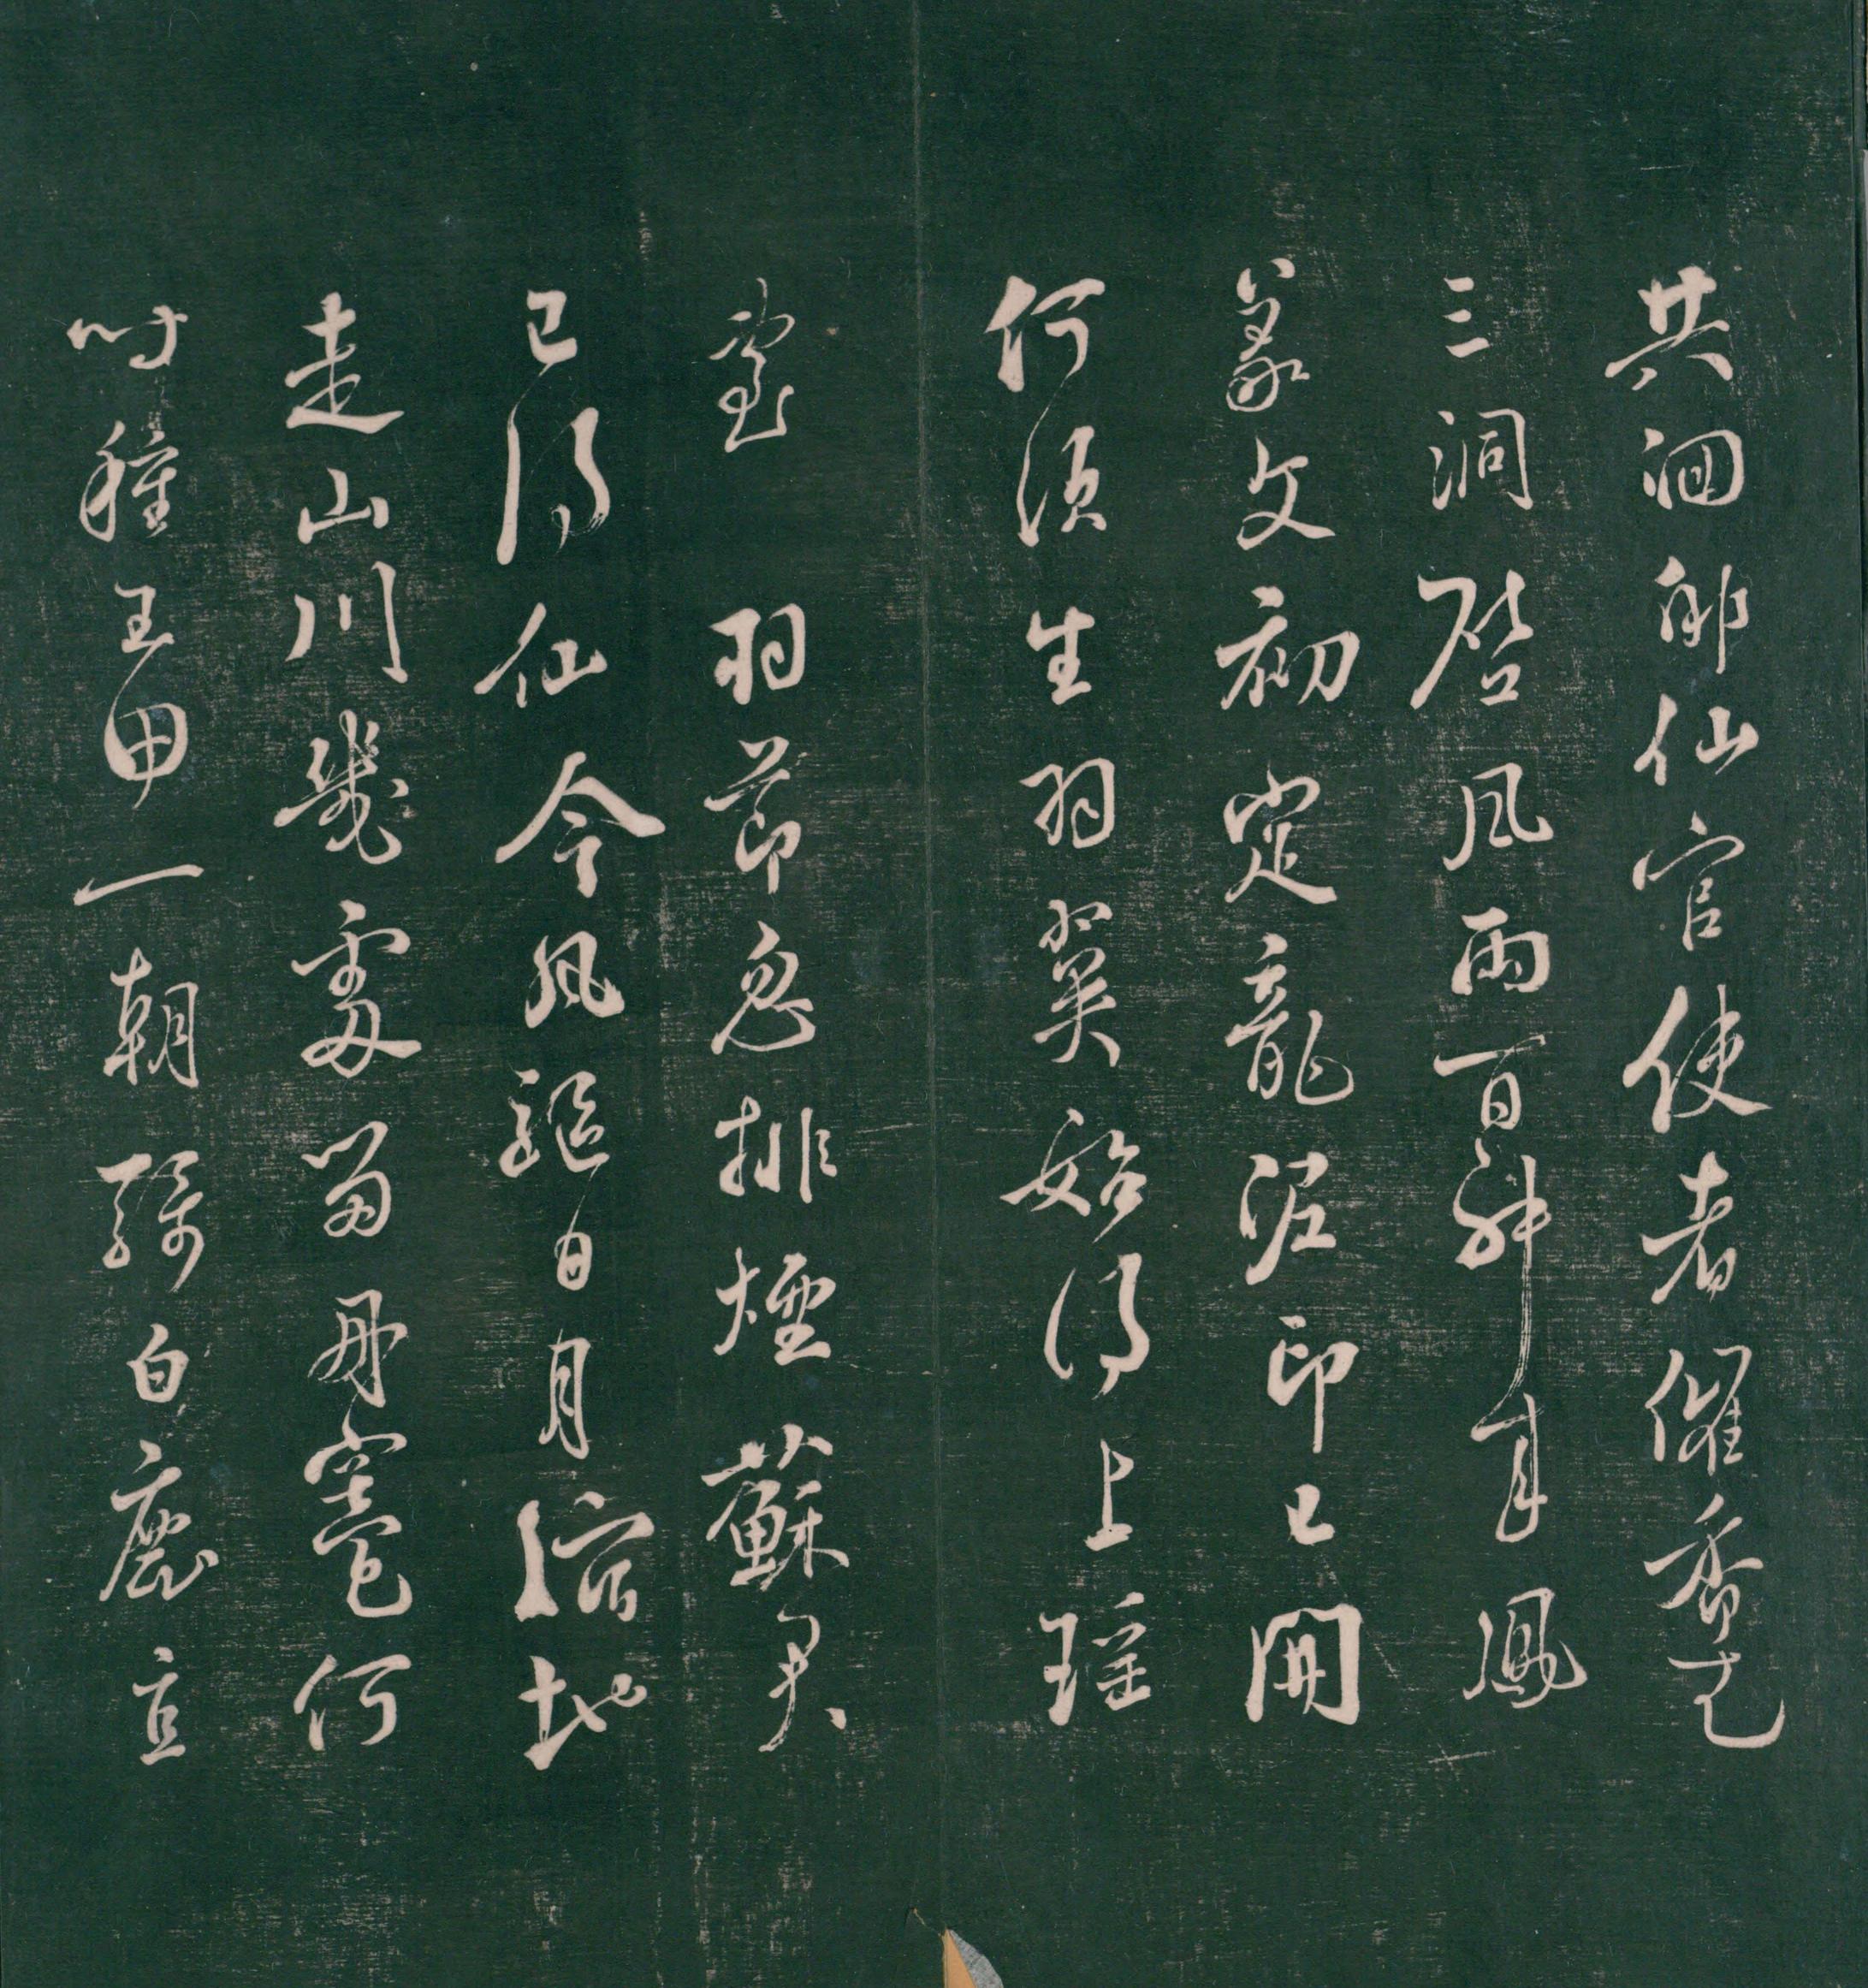 共洄仙官使者催香花
三洞啓風雨百神来鳳
篆文初定龍泥印已開
何須生羽翼始得上瑤
臺 羽節忽排煙蘇君
已得仙令風驅日月縮地
走山川幾處留丹竈何
時種玉田一朝騎白鹿直